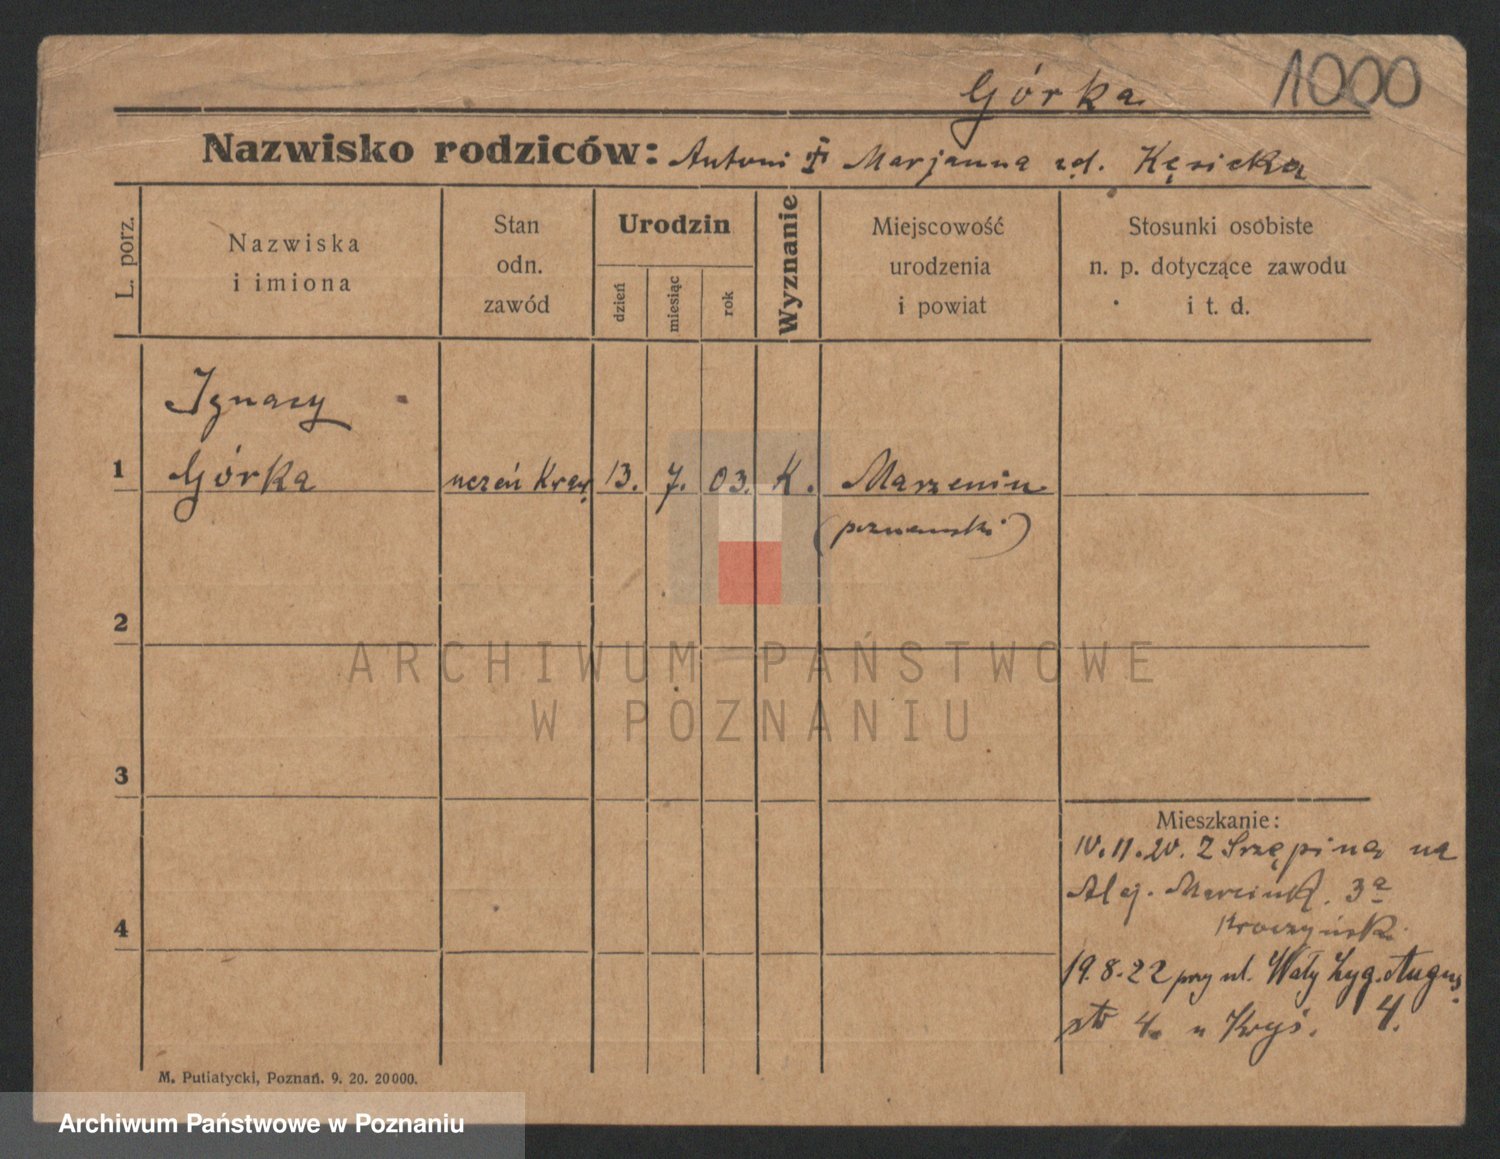 Górka 1000
Nazwisko rodziców: Antoni Marjanna zd. Kęsicka
L. porz.
Nazwiska
i imiona
Stan
odn.
zawód
Urodzin
dzień
miesiąc
rok
Wyznanie
Miejscowość
urodzenia
i powiat
Stosunki osobiste
n. p. dotyczące zawodu
i t. d.
Ignacy
1 Górka uczeń Kraw. 13. 7. 03. K. Marzenin
2
3
4
Mieszkanie:
10.11.20. Z na
Alej. Marcink. 3a
19.8.22 przy ul. Wały Zyg. Augus
4. u 4.
M. Putiatycki, Poznań. 9. 20. 20000.
ARCHIWUM PAŃSTWOWE
W POZNANIU
Archiwum Państwowe w Poznaniu